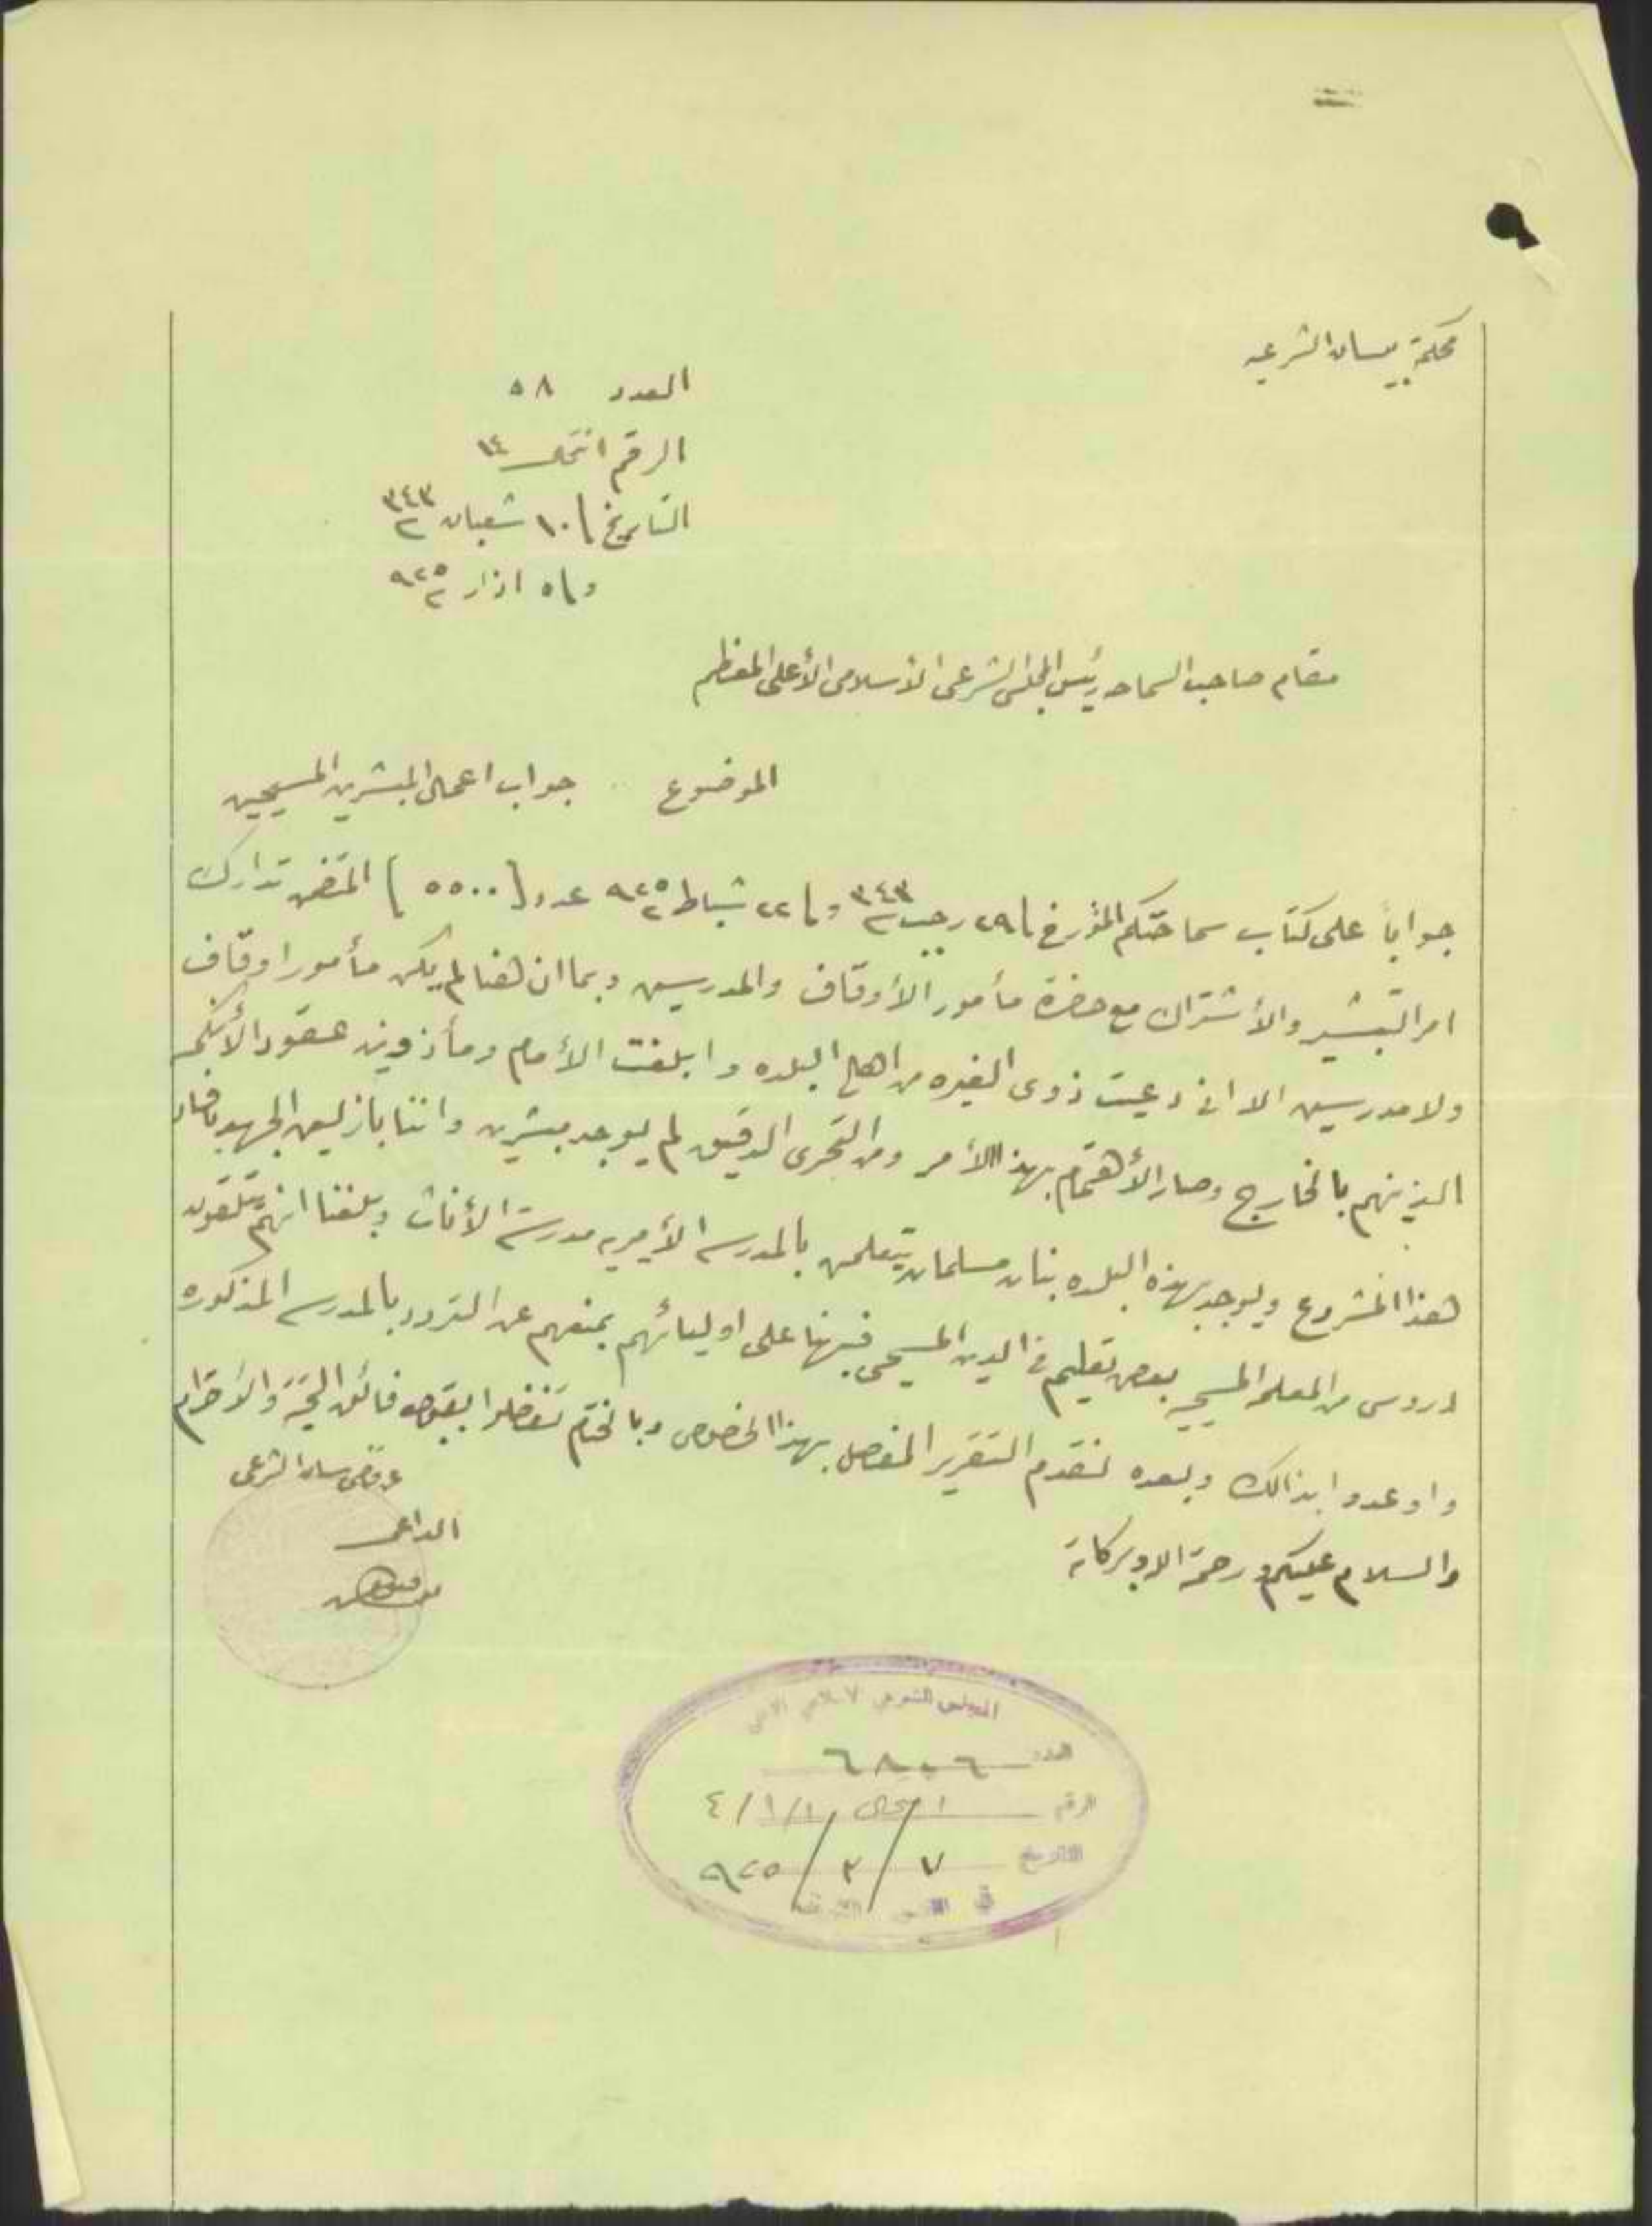 محكمة بيسان الشرعيه
العدد ٥٨
الرقم ١٤
التاريخ ١٠ شعبان ٣٤٣
و ٥ اذار ٩٢٥
مقام صاحب السماحه رئيس المجلس الشرعي الأسلامي الأعلى المعظم
الموضوع جواب اعمال المبشرين المسيحيين
جواباً على كتاب سماحتكم المؤرخ ٢٩ رجب ٣٤٣ و ٢٢ شباط ٩٢٥ عدد [ ٥٥٠٠ ] المتضمن تدارك
امر التبشير والأشتراك مع حضرة مأمور الأوقاف والمدرسين وبما ان هنا لم يكن مأمور اوقاف
ولا مدرسين الا اني دعيت ذوي الغيره من اهالي البلده وابلغت الأمام ومأذوين عقود الأنكحه
الذينهم بالخارج وصار الأهتمام بهذا الأمر ومن التحري الدقيق لم يوجد مبشرين واننا باذلين الجهد
هذا المشروع ويوجد بهذه البلده بنات مسلمات يتعلمن بالمدرسه الأميريه مدرسة الأناث وبلغنا انهم يتلقون
دروس من المعلمه المسيحيه بعض تعليم في الدين المسيحي فنبهنا على اوليائهم بمنعهم عن التردد بالمدرسه المذكوره
واوعدوا بذالك وبعده نقدم التقرير المفصل بهذا الخصوص وبالختام تفضلوا بقبول فائق التحية والأحترام
والسلام عليكم ورحمة الله وبركاته
الداعي
المجلس الشرعي الاسلامي الاعلى
العدد ٦٨٠٦
الرقم ٤/١/١
التاريخ ٧/٣/٩٢٥